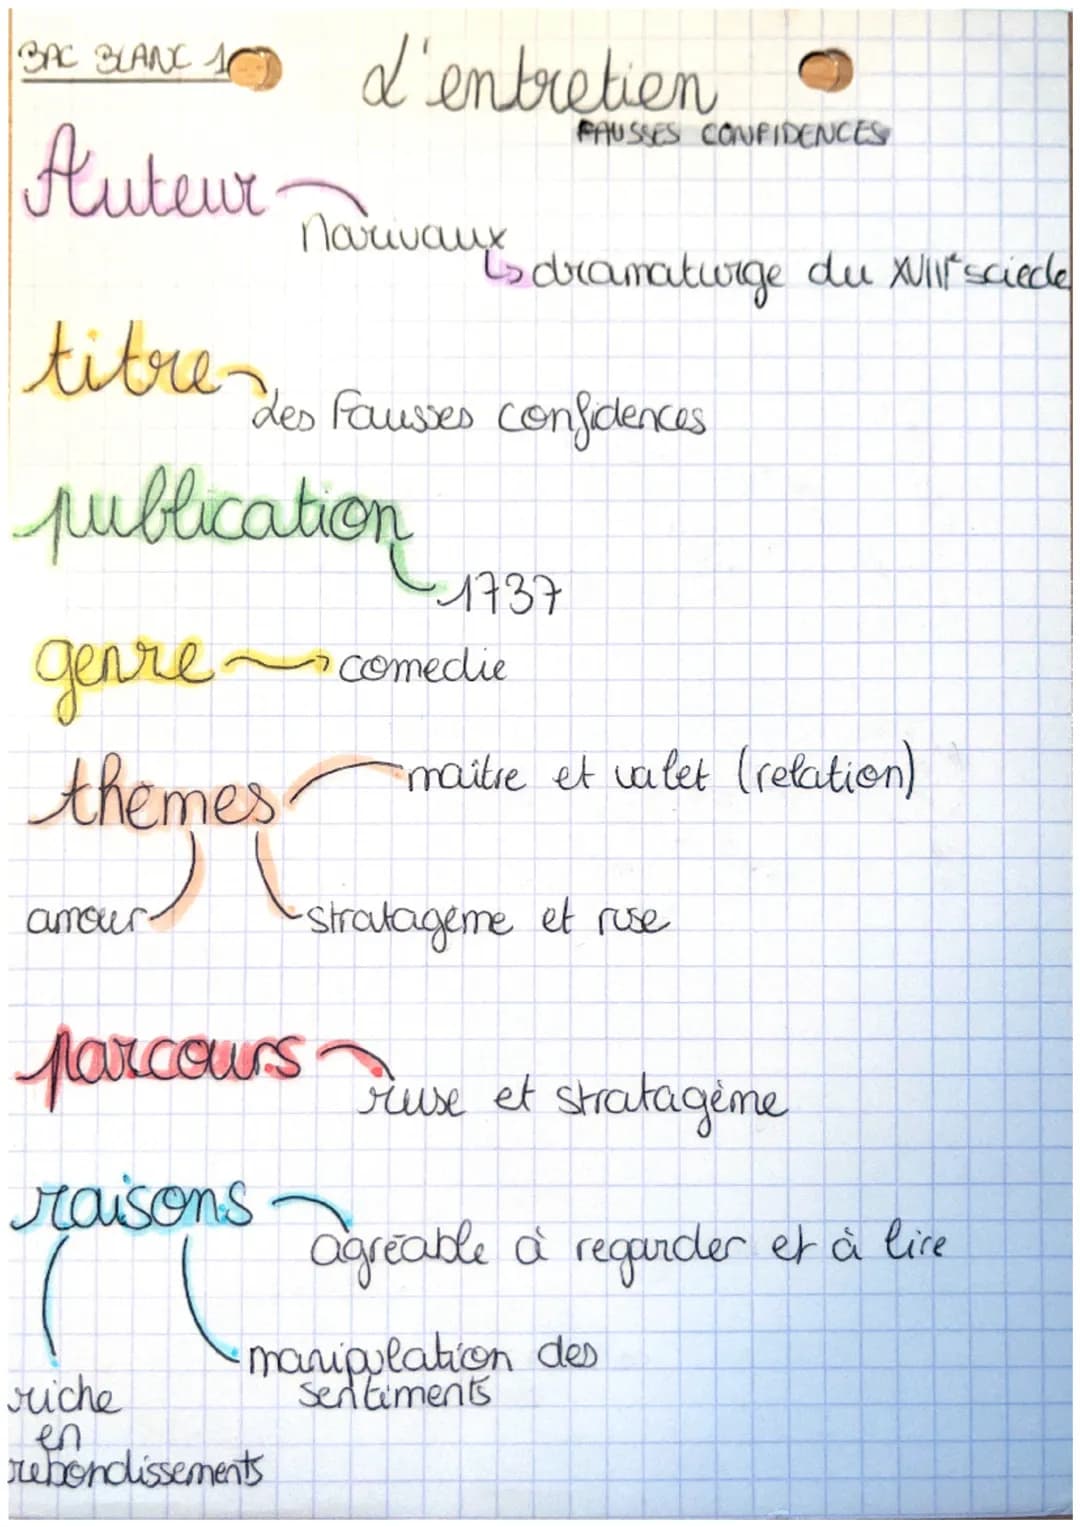 BAC BLANC 1
L'entretien
FAUSSES CONFIDENCES
Auteur
Marivaux
dramaturge du XVIIIe sciecle
titre
Les Fausses confidences
publication
1737
genre → comedie
thèmes
maître et valet (relation)
amour
stratagème et ruse
parcours
ruse et stratagème
raisons
agréable à regarder et à lire
manipulation des
sentiments
riche
en
rebondissements